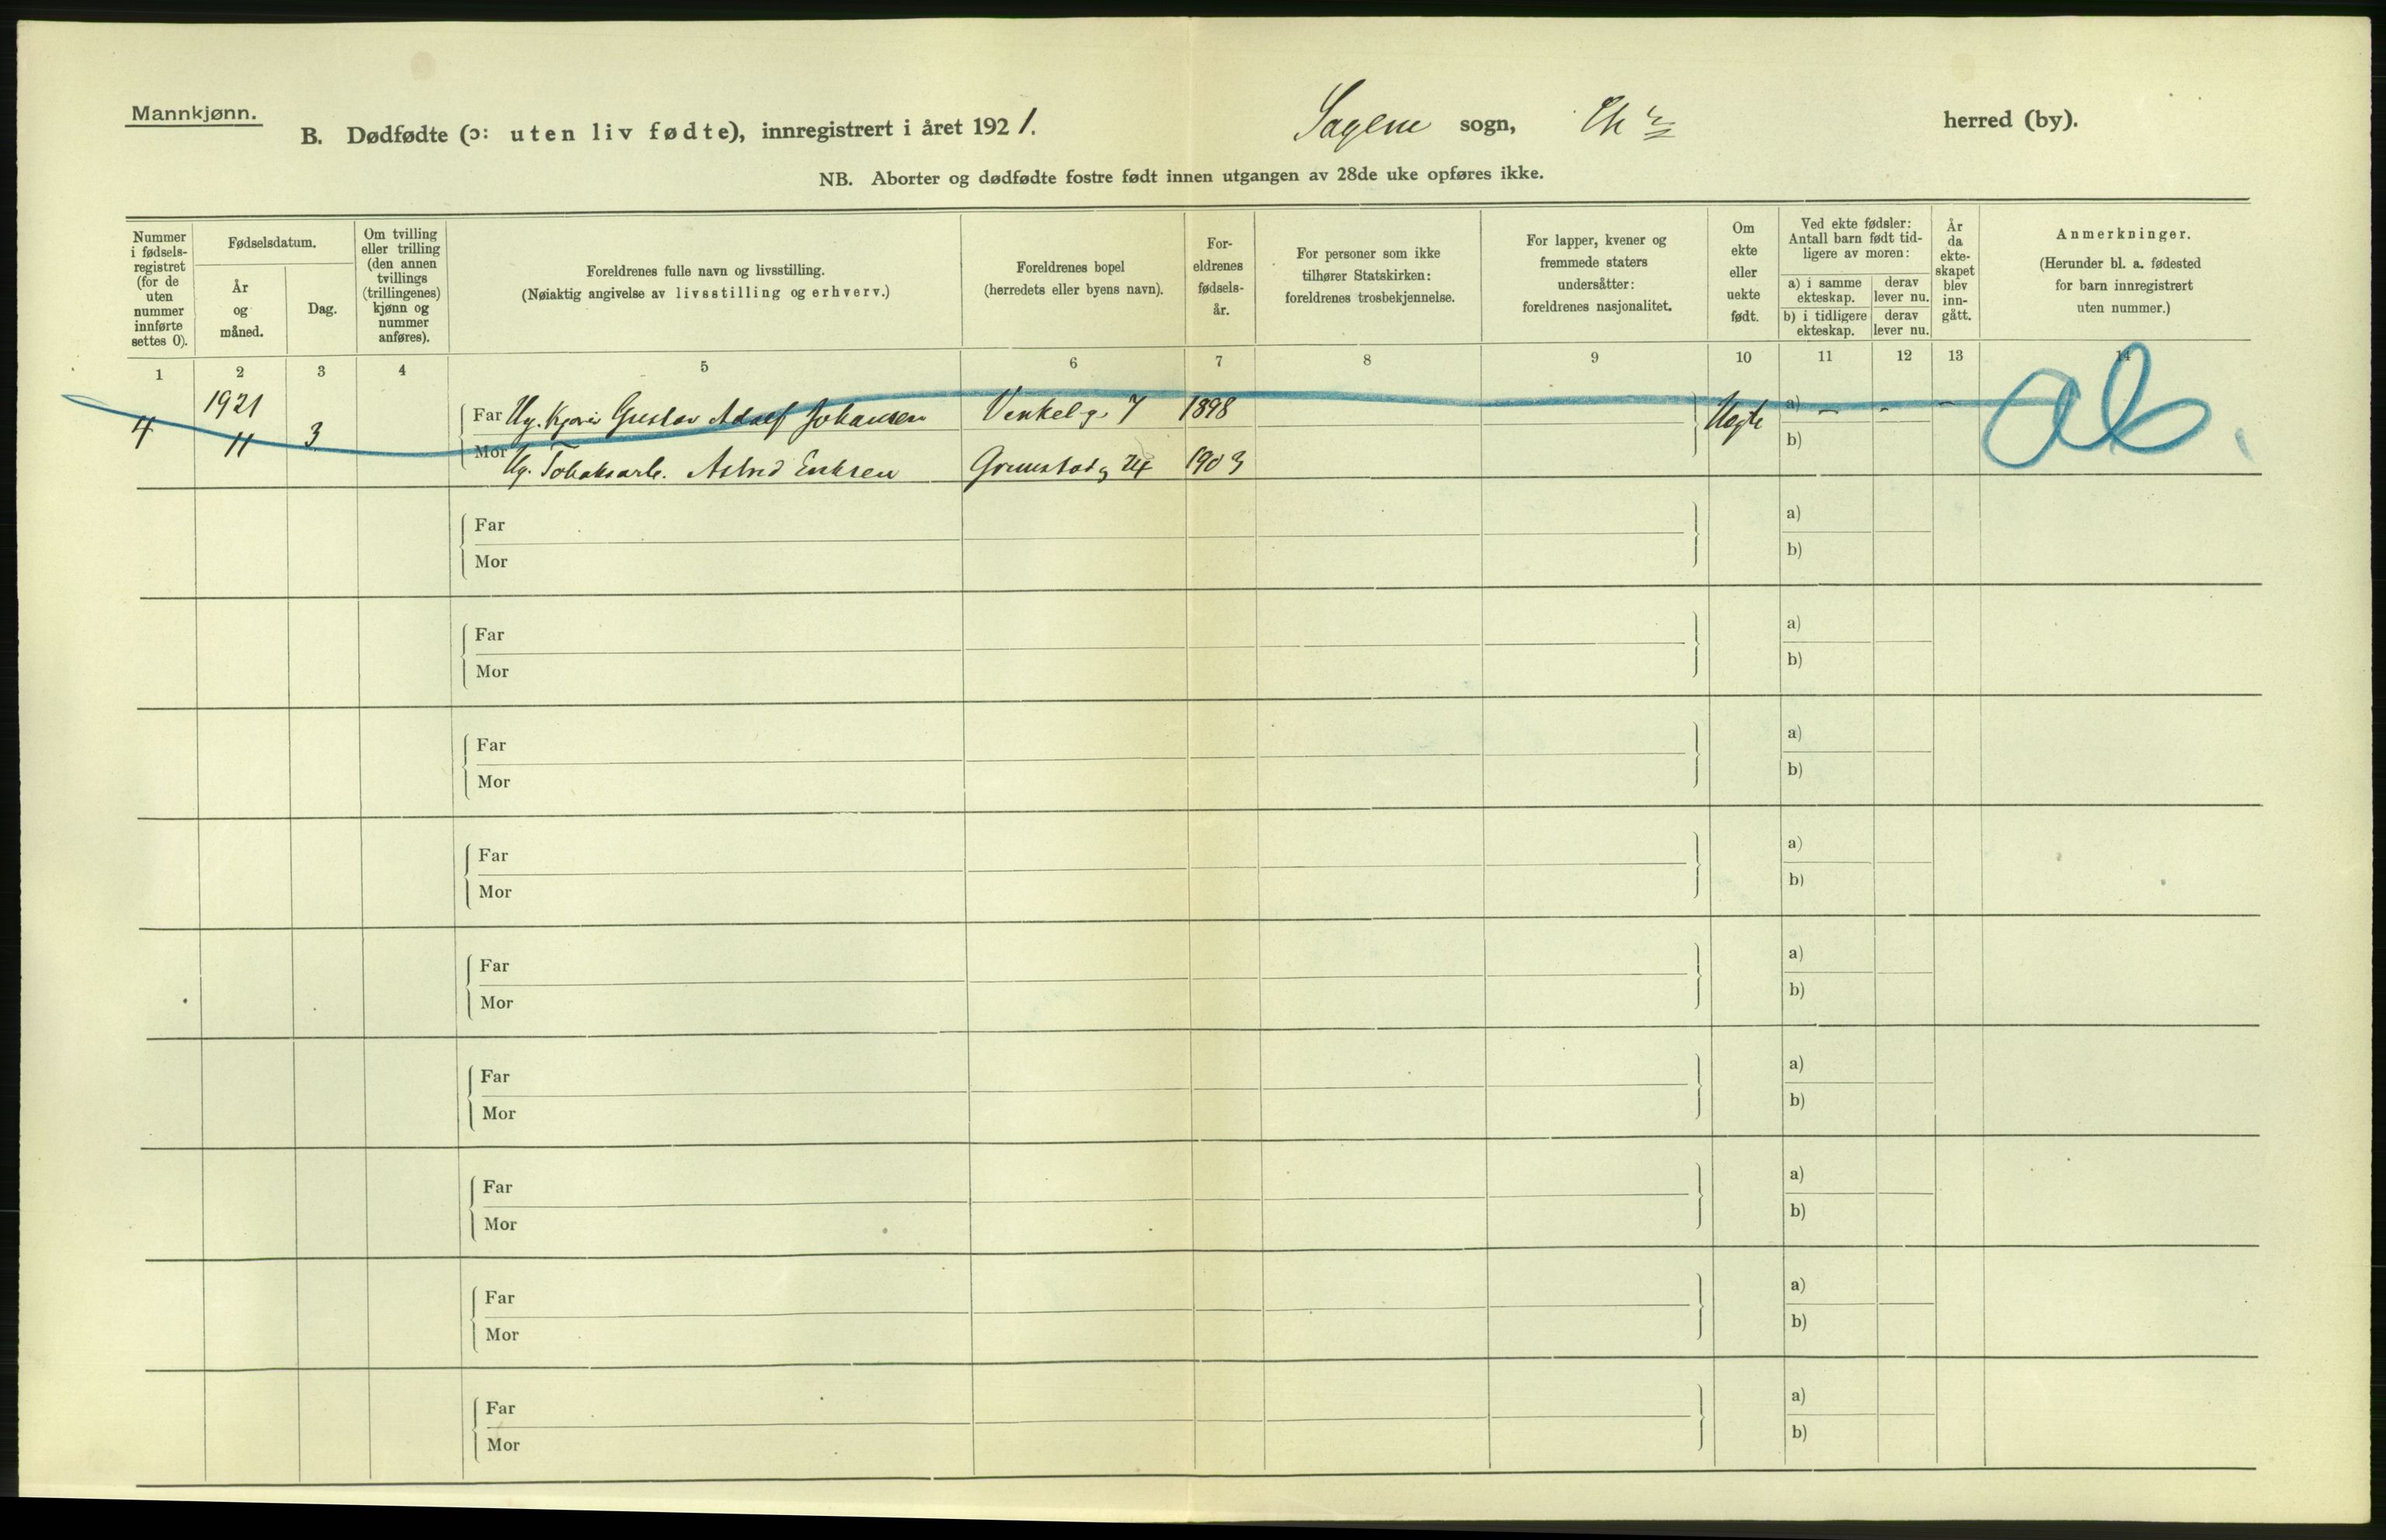 Mannkjønn.
B. Dødfødte (ɔ: uten liv fødte), innregistrert i året 1921.
Sagene sogn, herred (by).
NB. Aborter og dødfødte fostre født innen utgangen av 28de uke opføres ikke.
Nummer
i fødsels-
registret
(for de
uten
nummer
innførte
settes 0).
Fødselsdatum.
År
og
måned.
Dag.
Om tvilling
eller trilling
(den annen
tvillings
(trillingenes)
kjønn og
nummer
anføres).
Foreldrenes fulle navn og livsstilling.
(Nøiaktig angivelse av livsstilling og erhverv.)
Foreldrenes bopel
(herredets eller byens navn).
For-
eldrenes
fødsels-
år.
For personer som ikke
tilhører Statskirken:
foreldrenes trosbekjennelse.
For lapper, kvener og
fremmede staters
undersåtter:
foreldrenes nasjonalitet.
Om
ekte
eller
uekte
født.
Ved ekte fødsler:
Antall barn født tid-
ligere av moren:
a) i samme
ekteskap.
derav
lever nu.
b) i tidligere
ekteskap.
derav
lever nu.
År
da
ekte-
skapet
blev
inn-
gått.
Anmerkninger.
(Herunder bl. a. fødested
for barn innregistrert
uten nummer.)
1 2 3 4 5 6 7 8 9 10 11 12 13 14
4 1921 11 3
Far Ug. Gustav Adolf Johansen 7 1898
Uegte a) - - -
Mor Ug. Tobaksarb. Astrid Eriksen 24 1903
b)
Far a)
Mor b)
Far a)
Mor b)
Far a)
Mor b)
Far a)
Mor b)
Far a)
Mor b)
Far a)
Mor b)
Far a)
Mor b)
Far a)
Mor b)
Far a)
Mor b)